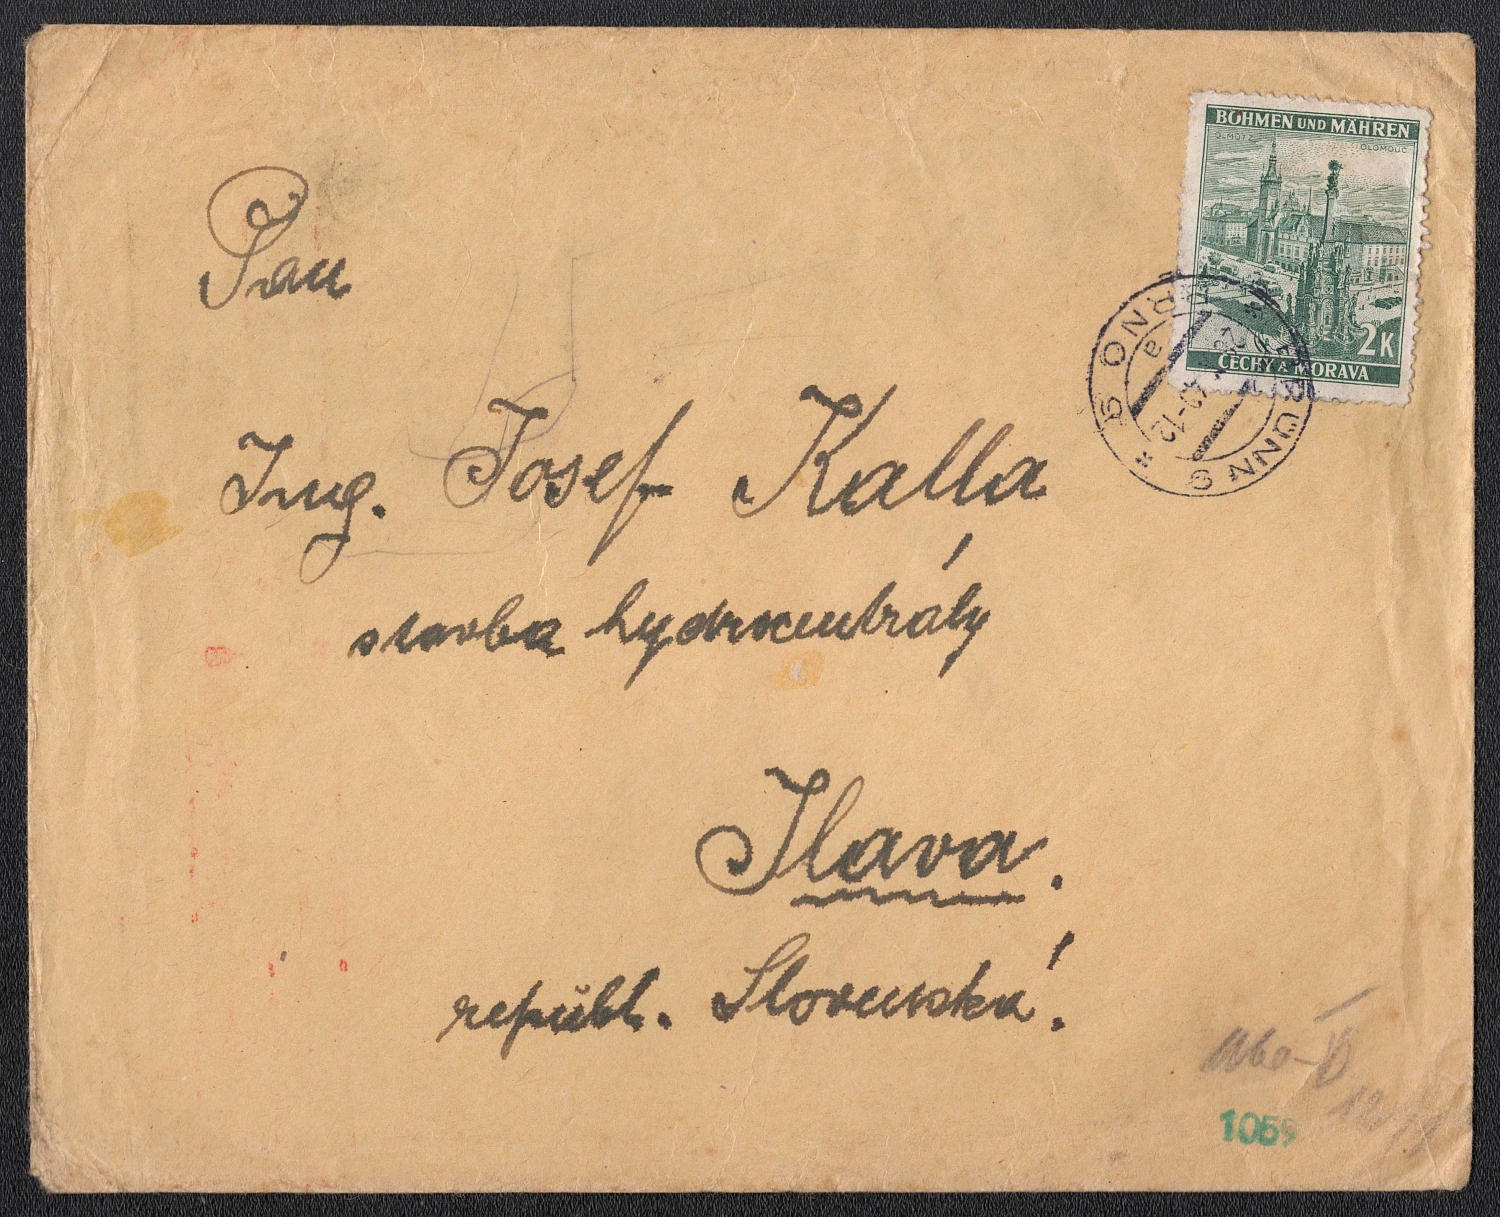 BÖHMEN UND MÄHREN
OLMÜTZ OLOMOUC
2K
ČECHY A MORAVA
BRÜNN 9
BRNO 9
a
40-12
Pan
Ing. Josef Kalla
stavba hydrocentrály
Ilava.
republ. Slovenská.
1059